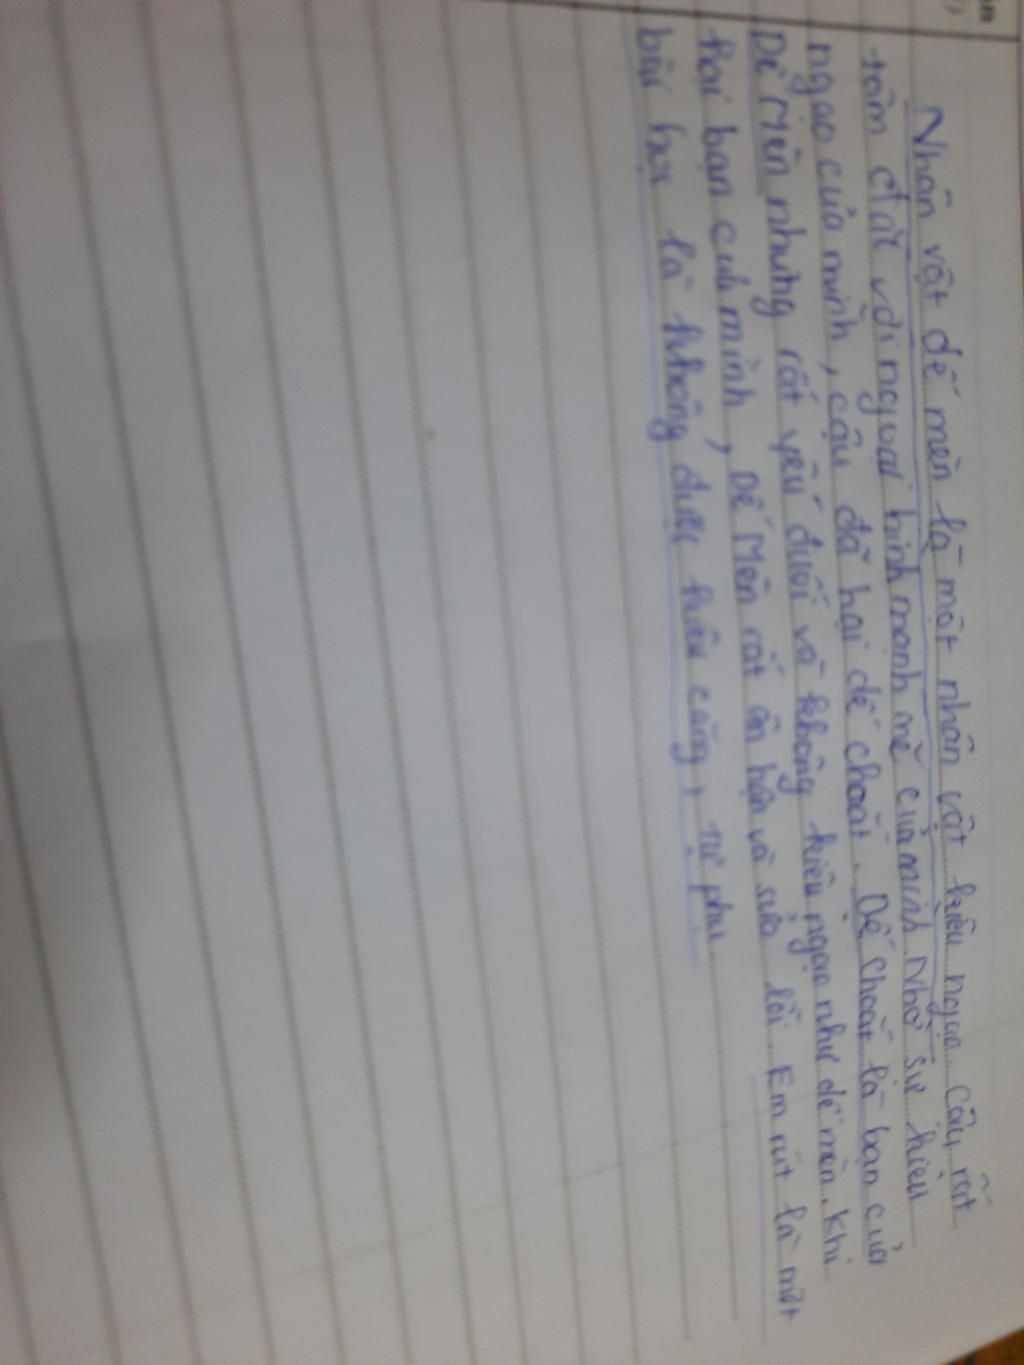 Nhân vật dế mèn là một nhân vật kiêu ngạo. Cậu rất
tâm đắc với ngoại hình mạnh mẽ của mình. Nhờ sự kiêu
ngạo của mình, cậu đã hại dế choắt. Dế Choắt là bạn của
Dế Mèn nhưng rất yếu đuối và không kiêu ngạo như dế mèn. Khi
hại bạn của mình, Dế Mèn rất ân hận và sửa lỗi. Em rút là một
bài học là không được kiêu căng, tự phụ.